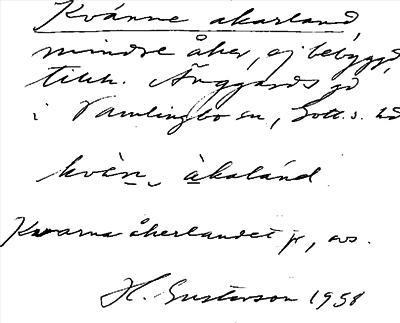 Kvánne akarland
mindre åker, ej bebyggd,
tillh. Änggårds gd
i Vamlingbo sn, Gotl.s.
kvèn àkaland
Kvarna åkerlandet
H. Gustavson 1958